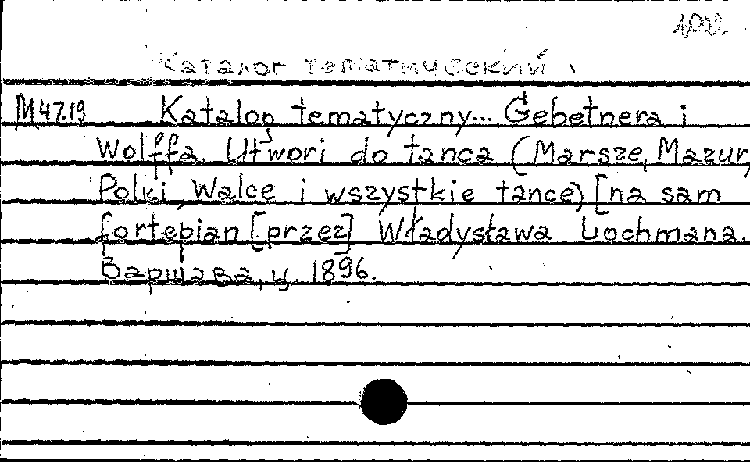 Каталог тематический
М47.19 Katalog tematyczny... Gebetnera i
Wolffa. Utwori do tanca (Marsze, Mazur,
Polki, Walce i wszystkie tance) [na sam
fortepian [przez] Władysława Lochmana.
Варшава, ц. 1896.